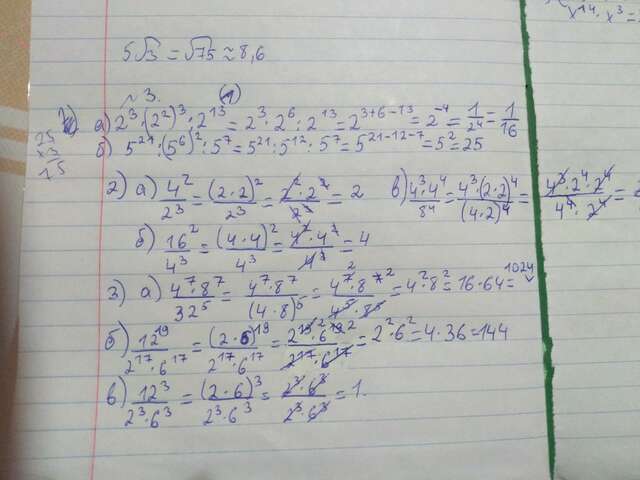 x¹⁴·x³=
5√3=√75≈8,6
~3.
1
а) 2³·(2²)³:2¹³=2³·2⁶:2¹³=2³⁺⁶⁻¹³=2⁻⁴=1/2⁴=1/16
25
×3
75
б) 5²¹:(5⁶)²:5⁷=5²¹:5¹²:5⁷=5²¹⁻¹²⁻⁷=5²=25
2) а) 4²/2³=(2·2)²/2³=2²·2²/2³=2 в) 4³·4⁴/8⁴=4³·(2·2)⁴/(4·2)⁴=4³·2⁴·2⁴/4⁴·2⁴=
б) 16²/4³=(4·4)²/4³=4²·4²/4³=4
3) а) 4⁷·8⁷/32⁵=4⁷·8⁷/(4·8)⁵=4⁷·8⁷/4⁵·8⁵=4²·8²=16·64=1024
б) 12¹⁹/2¹⁷·6¹⁷=(2·6)¹⁹/2¹⁷·6¹⁷=2¹⁹·6¹⁹/2¹⁷·6¹⁷=2²·6²=4·36=144
в) 12³/2³·6³=(2·6)³/2³·6³=2³·6³/2³·6³=1.